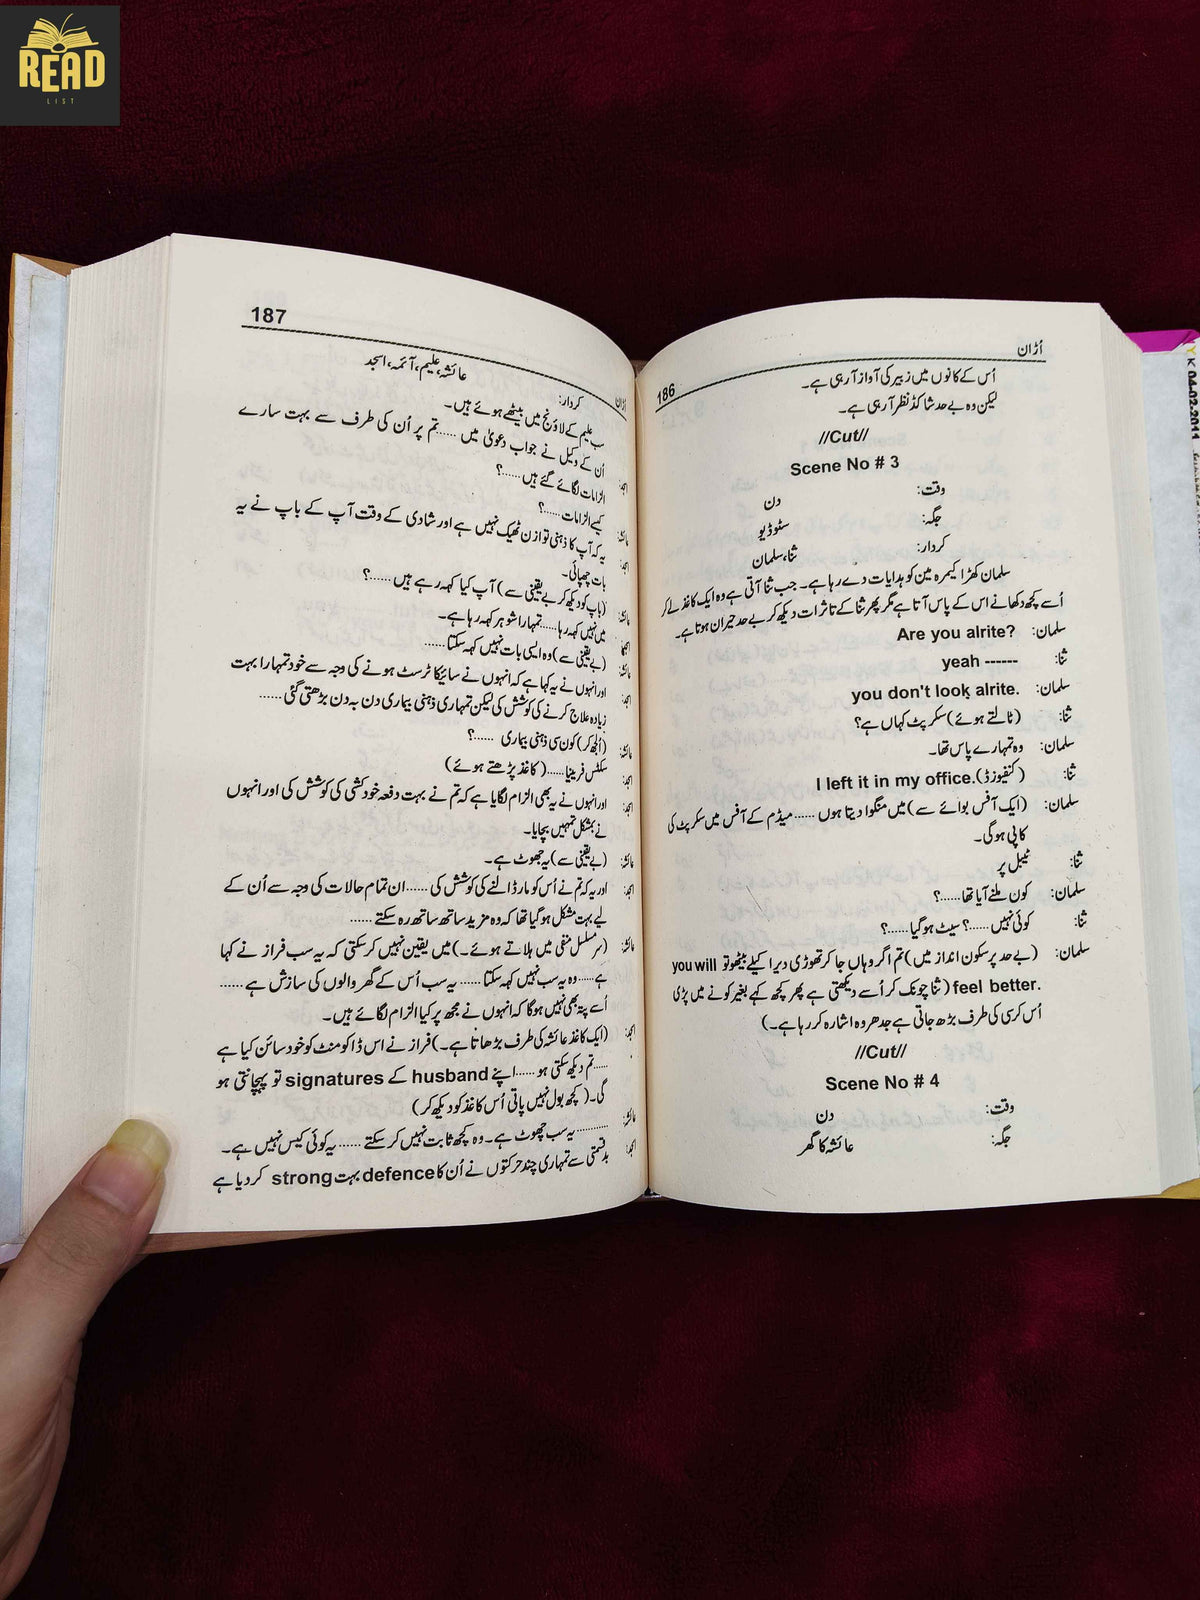 READ
LIST
اُڑان
186
اُس کے کانوں میں زبیر کی آواز آ رہی ہے۔
لیکن وہ بے حد شاکڈ نظر آ رہی ہے۔
//Cut//
Scene No # 3
وقت: دن
جگہ: سٹوڈیو
کردار: ثنا، سلمان
سلمان کھڑا کیمرہ مین کو ہدایات دے رہا ہے۔ جب ثنا آتی ہے وہ ایک کاغذ لے کر
اُسے کچھ دکھانے اس کے پاس آتا ہے مگر پھر ثنا کے تاثرات دیکھ کر بے حد حیران ہوتا ہے۔
سلمان: Are you alrite?
ثنا: yeah ------
سلمان: you don't look alrite.
ثنا: (ٹالتے ہوئے) سکرپٹ کہاں ہے؟
سلمان: وہ تمہارے پاس تھا۔
ثنا: (کنفیوزڈ) I left it in my office.
سلمان: (ایک آفس بوائے سے) میں منگوا دیتا ہوں ...... میڈم کے آفس میں سکرپٹ کی
کاپی ہو گی۔
ثنا: ٹیبل پر
سلمان: کون ملنے آیا تھا......؟
ثنا: کوئی نہیں ......؟ سیٹ ہو گیا......؟
سلمان: (بے حد پر سکون انداز میں) تم اگر وہاں جا کر تھوڑی دیر اکیلے بیٹھو تو you will
feel better. (ثنا چونک کر اُسے دیکھتی ہے پھر کچھ کہے بغیر کونے میں پڑی
اُس کرسی کی طرف بڑھ جاتی ہے جدھر وہ اشارہ کر رہا ہے۔)
//Cut//
Scene No # 4
وقت: دن
جگہ: عائشہ کا گھر
187
اُڑان
کردار: عائشہ، علیم، آئمہ، امجد
سب علیم کے لاؤنج میں بیٹھے ہوئے ہیں۔
امجد: اُن کے وکیل نے جواب دعویٰ میں ......تم پر اُن کی طرف سے بہت سارے
الزامات لگائے گئے ہیں ......؟
عائشہ: کیسے الزامات ......؟
امجد: یہ کہ آپ کا ذہنی توازن ٹھیک نہیں ہے اور شادی کے وقت آپ کے باپ نے یہ
بات چھپائی۔
عائشہ: (باپ کو دیکھ کر بے یقینی سے) آپ کیا کہہ رہے ہیں ......؟
میں نہیں کہہ رہا...... تمہارا شوہر کہہ رہا ہے۔
عائشہ: (بے یقینی سے) وہ ایسی بات نہیں کہہ سکتا......
امجد: اور انہوں نے یہ کہا ہے کہ انہوں نے سائیکاٹرسٹ ہونے کی وجہ سے خود تمہارا بہت
زیادہ علاج کرنے کی کوشش کی لیکن تمہاری ذہنی بیماری دن بہ دن بڑھتی گئی ......
عائشہ: (اُلجھ کر) کون سی ذہنی بیماری ......؟
امجد: سکٹس فرینیا...... (کاغذ پڑھتے ہوئے)
امجد: اور انہوں نے یہ بھی الزام لگایا ہے کہ تم نے بہت دفعہ خودکشی کی کوشش کی اور انہوں
نے بمشکل تمہیں بچایا۔
عائشہ: (بے یقینی سے) یہ جھوٹ ہے۔
امجد: اور یہ کہ تم نے اُس کو مار ڈالنے کی کوشش کی ...... ان تمام حالات کی وجہ سے اُن کے
لیے بہت مشکل ہو گیا تھا کہ وہ مزید ساتھ ساتھ رہ سکتے ......
عائشہ: (سر مسلسل منفی میں ہلاتے ہوئے۔) میں یقین نہیں کر سکتی کہ یہ سب فراز نے کہا
ہے ...... وہ یہ سب نہیں کہہ سکتا ...... یہ سب اُس کے گھر والوں کی سازش ہے ......
اُسے پتہ بھی نہیں ہوگا کہ انہوں نے مجھ پر کیا الزام لگائے ہیں۔
امجد: (ایک کاغذ عائشہ کی طرف بڑھاتا ہے۔) فراز نے اس ڈاکومنٹ کو خود سائن کیا ہے
...... تم دیکھ سکتی ہو ...... اپنے husband کے signatures تو پہچانتی ہو
گی۔ (کچھ بول نہیں پاتی اُس کاغذ کو دیکھ کر)
عائشہ: ............ یہ سب جھوٹ ہے۔ وہ کچھ ثابت نہیں کر سکتے ...... یہ کوئی کیس نہیں ہے۔
امجد: بدقسمتی سے تمہاری چند حرکتوں نے اُن کا defence بہت strong کر دیا ہے